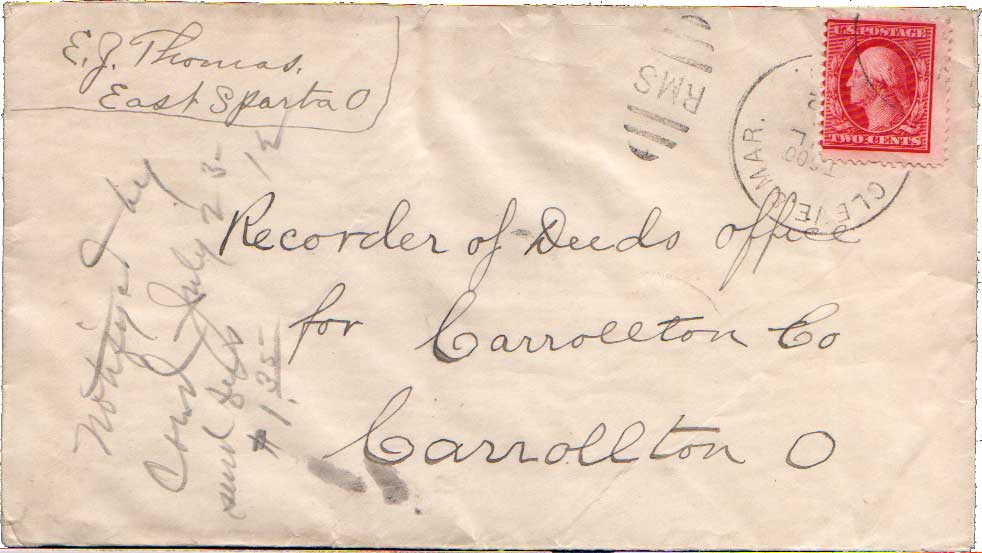 E. J. Thomas.
East Sparta O
RMS
CLEVE MAR.
U.S. POSTAGE
TWO CENTS
Recorder of Deeds office
for Carrollton Co
Carrollton O
by
July 23-12
send
$1.35